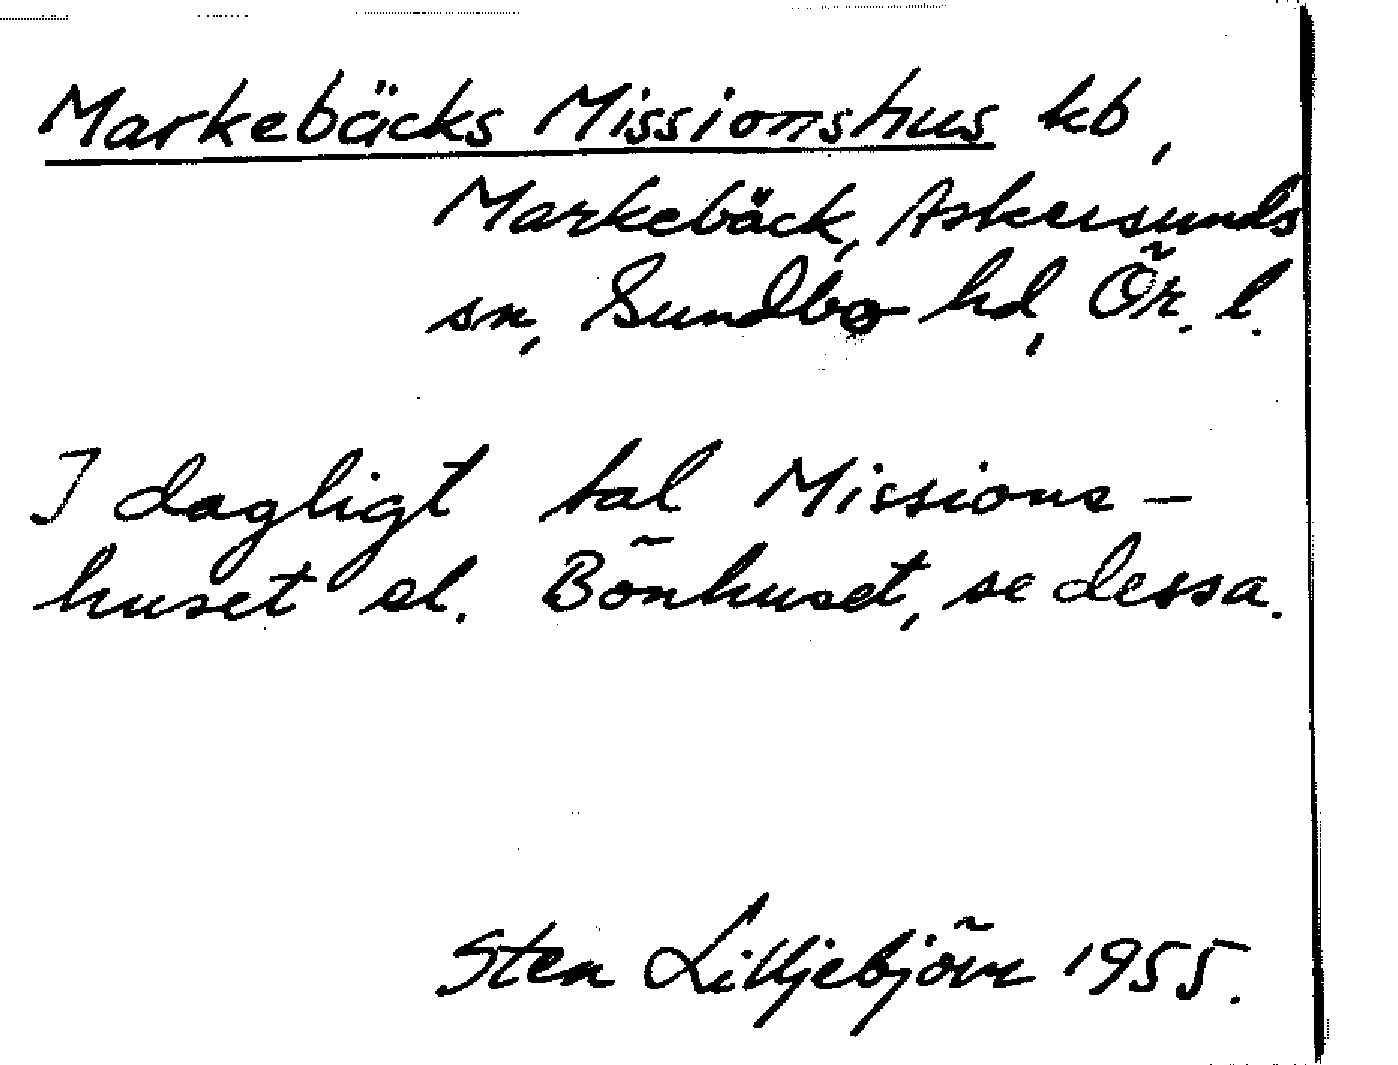 Markebäcks Missionshus kb,
Markebäck, Askersunds
sn, Sundbo hd, Ör. l.
I dagligt tal Missions-
huset el. Bönhuset, se dessa.
Sten Lilljebjörn 1955.